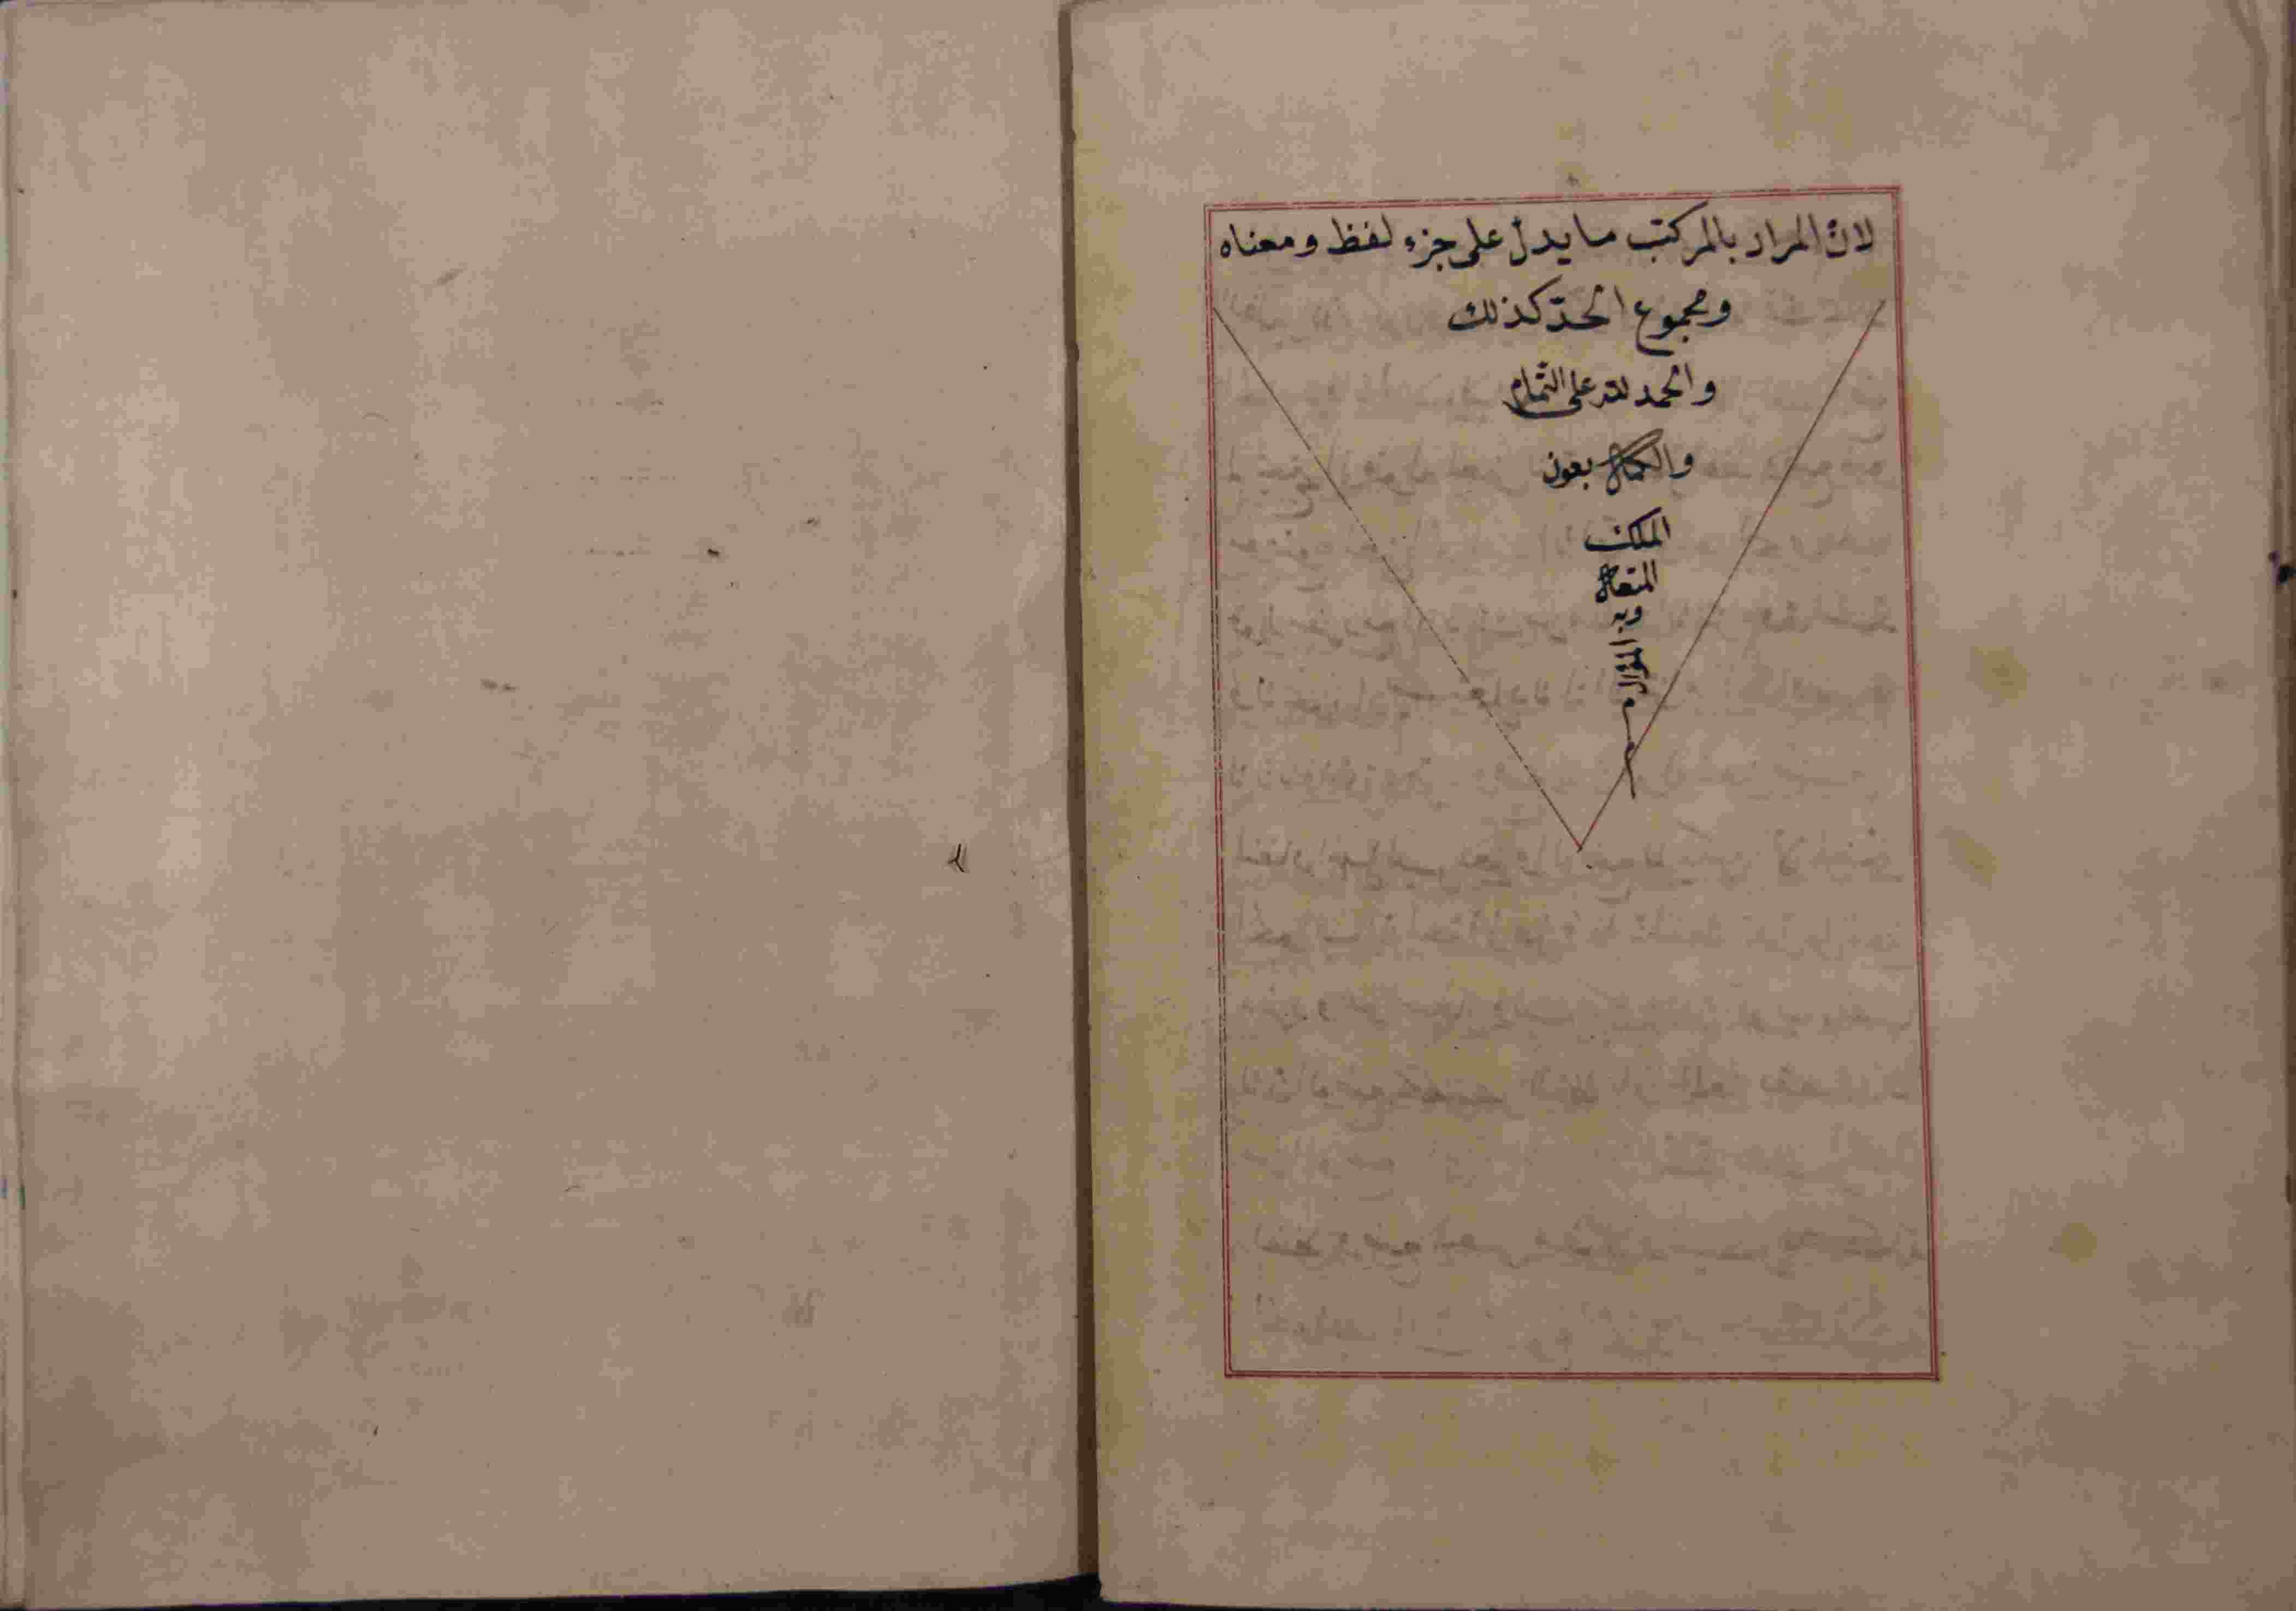 لانّ المراد بالمركّب ما يدلّ على جزء لفظ ومعناه
ومجموع الحدّ كذلك
والحمد لله على التّمام
والكمال بعون
الملك
المتعال
وبه